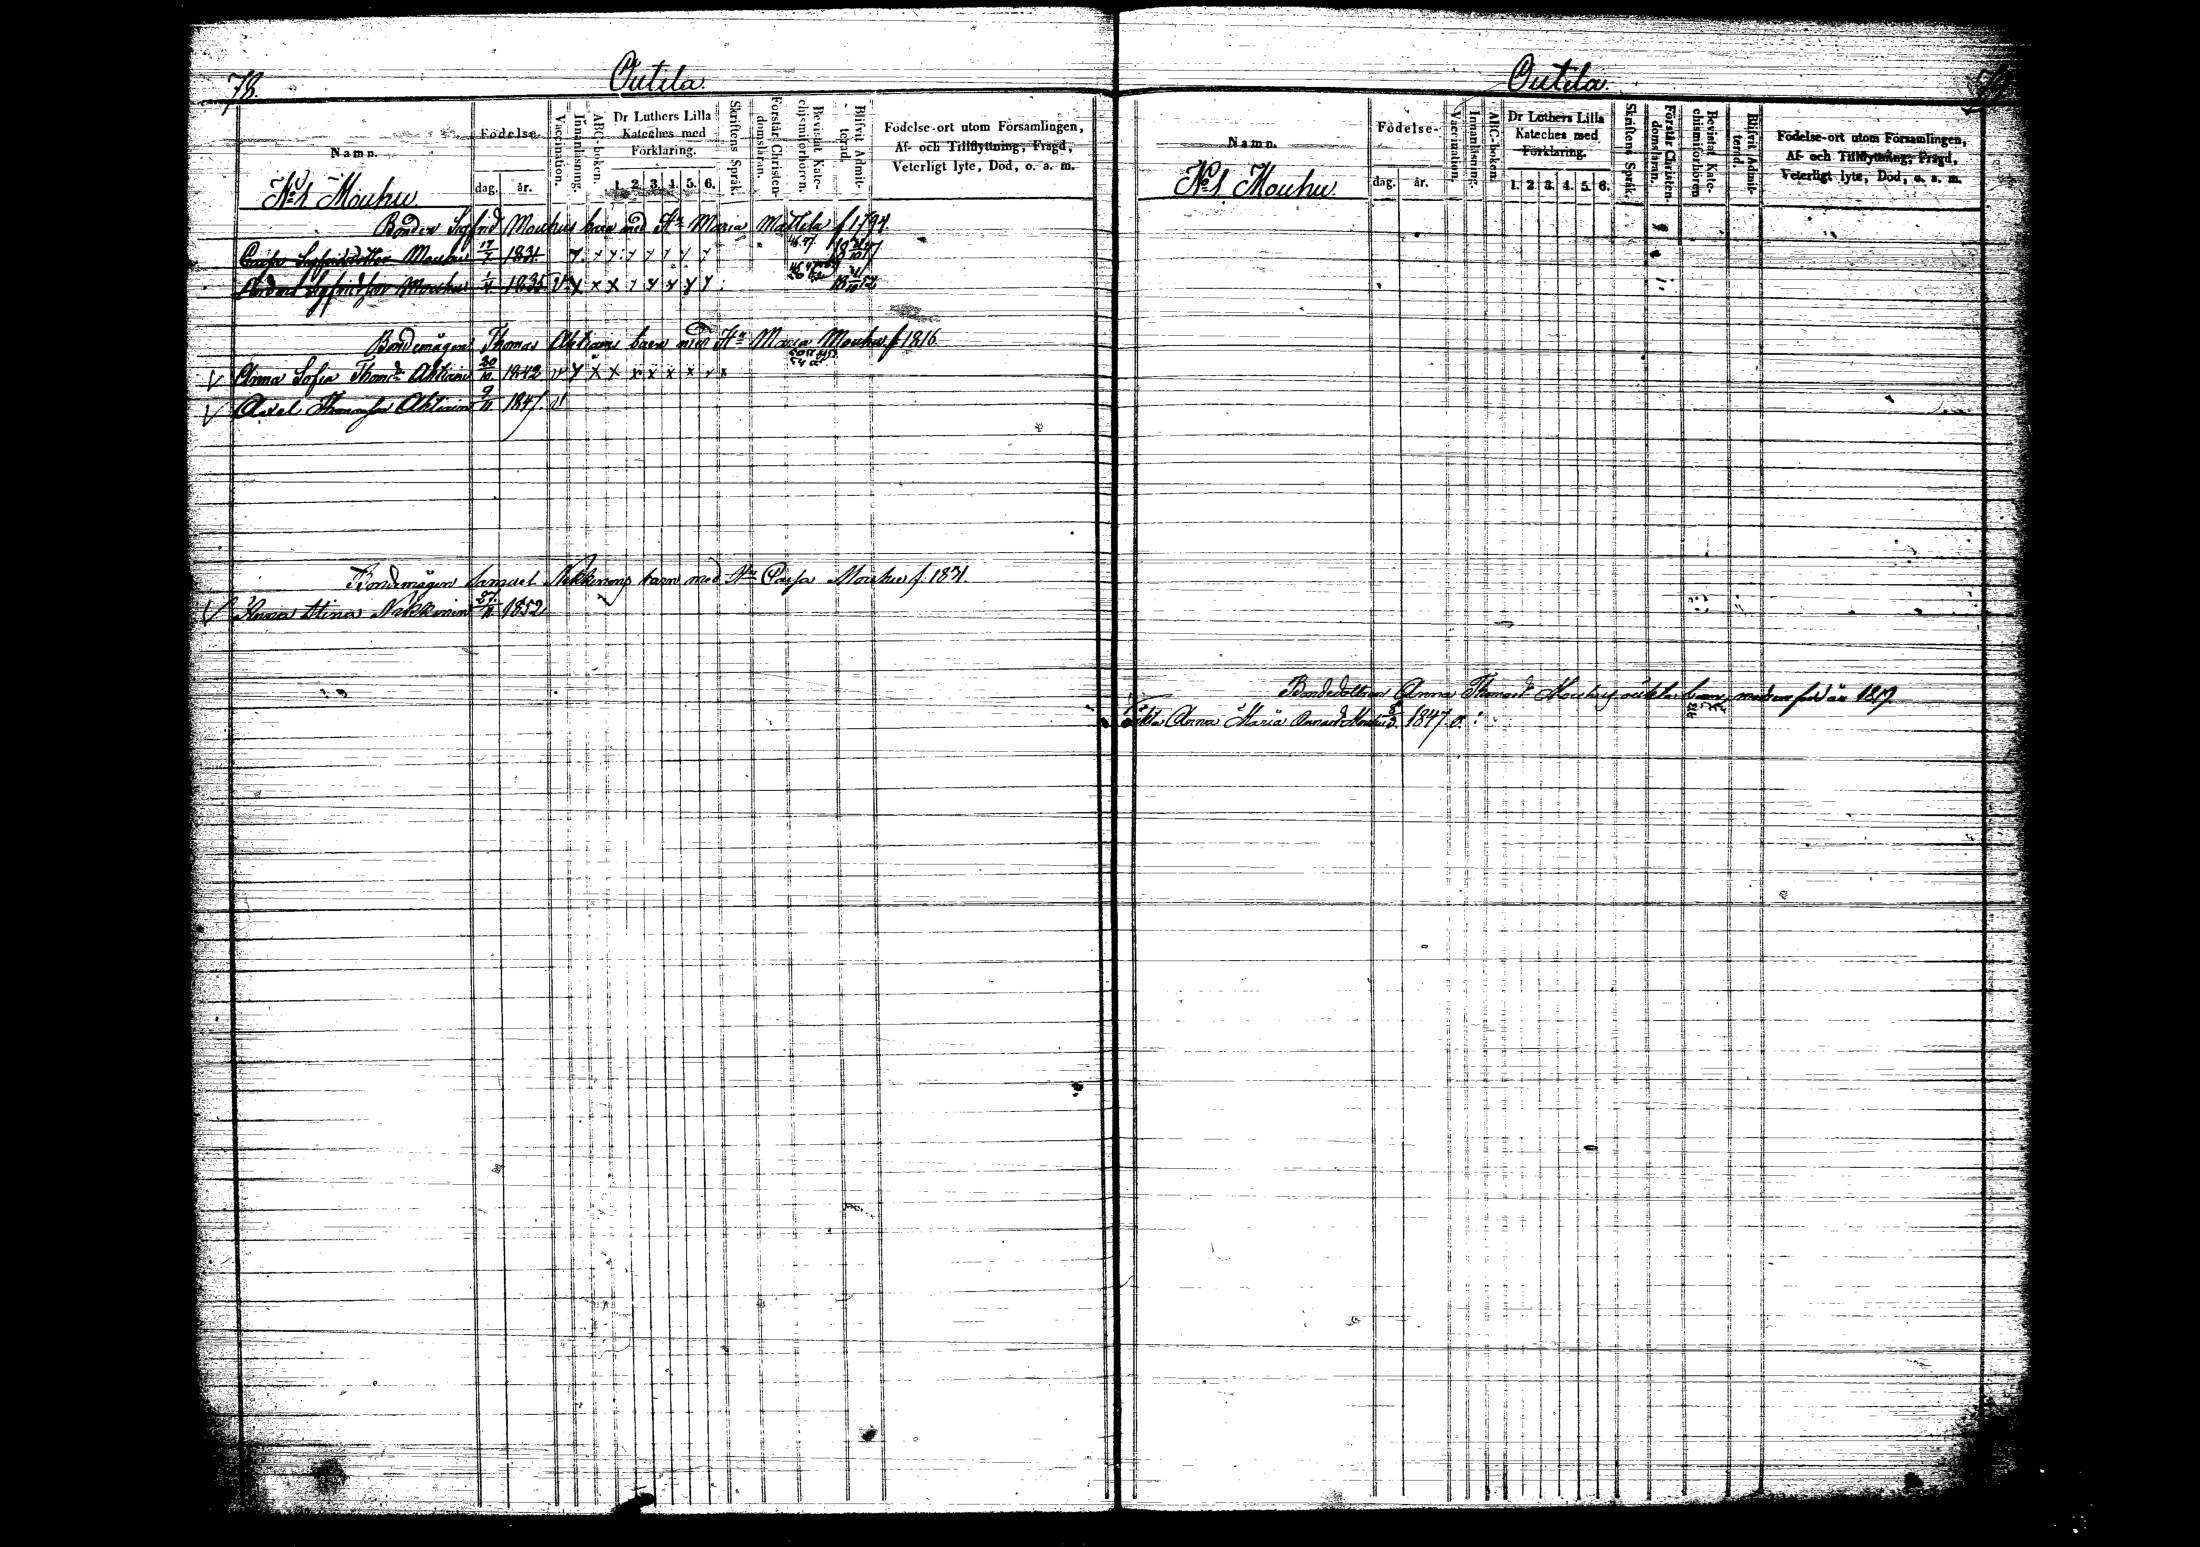 78.
Outila.
Namn.
Födelse-
dag.
år.
Vaccination.
Innanläsning.
ABC-boken.
Dr Luthers Lilla
Kateches med
Förklaring.
1. 2. 3. 4. 5. 6.
Skriftens Språk.
Förstår Christen-
domsläran.
Bevistat Kate-
chismiförhören.
Blifvit Admit-
terad.
Födelse-ort utom Församlingen,
Af- och Tillflyttning, Frägd,
Veterligt lyte, Död, o. a. m.
No 1 Mouhu
Bonden Sigfrid Mouhus barn med Hu Maria Mattila f 1794.
Sigfridsdotter Mouhu 17 1831
Sigfridsson Mouhu 1835 V x x x
Bondemågen Thomas Ahtiains barn med Hu Maria Mouhu f 1816.
V Anna Sofia Thomdr Ahtiain 30/10 1842 v y x x x x x x v x
V Axel Thomasson Ahtiain 9/11 1847. v
Bondemågen Samuel Nokkonens barn med Hu Caisa Mouhu f. 1831.
V Anna Stina 27/11 1852
Outila.
Namn.
Födelse-
dag.
år.
Vaccination.
Innanläsning.
ABC-boken.
Dr Luthers Lilla
Kateches med
Förklaring.
1. 2. 3. 4. 5. 6.
Skriftens Språk.
Förstår Christen-
domsläran.
Bevistat Kate-
chismiförhören
Blifvit Admit-
terad.
Födelse-ort utom Församlingen,
Af- och Tillflyttning, Frägd,
Veterligt lyte, Död, o. a. m.
No 1 Mouhu.
Bondedottren Anna Thomasdr Mouhus oäkta barn, modren född år 1819.
oäkta Anna Maria Annasdr Mouhu 1847. v.